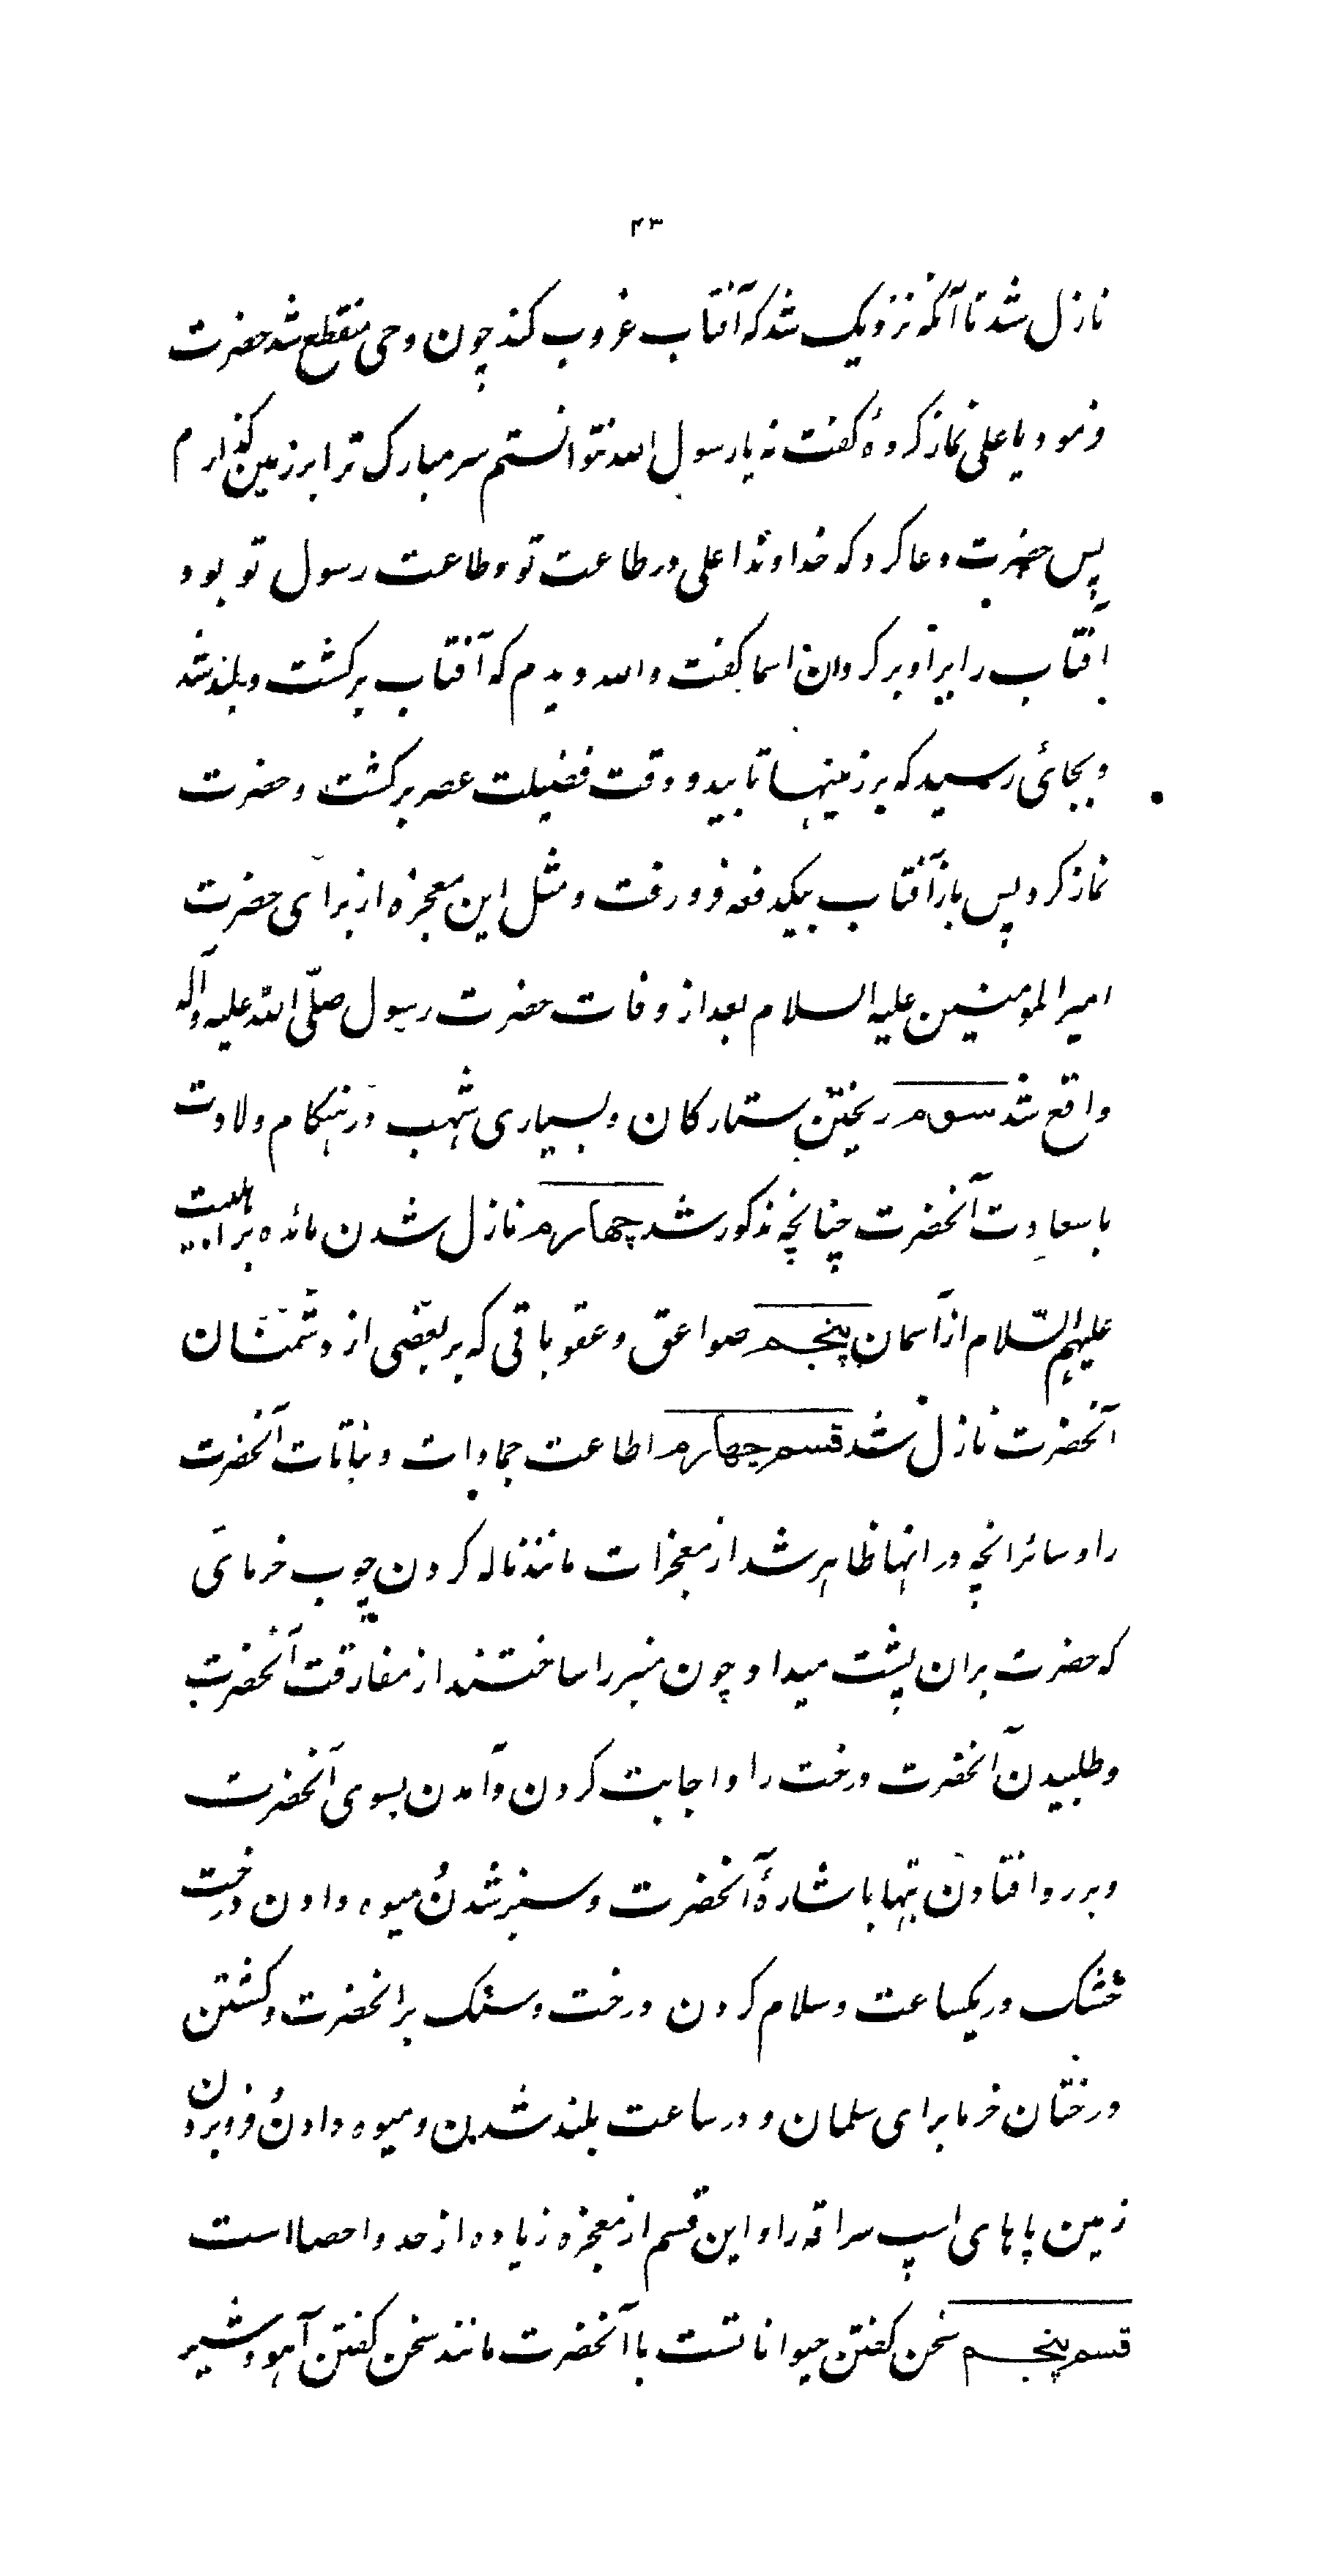 ۴۳
نازل شد تا آنکه نزدیک شد که آفتاب غروب کند چون وحی منقطع شد حضرت
فرمود یا علی نماز کرده‌ٔ گفت نه یا رسول الله نتوانستم سر مبارک ترا بر زمین گذارم
پس حضرت دعا کرد که خداوندا علی در طاعت تو و طاعت رسول تو بود
آفتاب را بر او برگردان اسما گفت والله دیدم که آفتاب برگشت و بلند شد
و بجائی رسید که بر زمینها تابید و وقت فضیلت عصر برگشت و حضرت
نماز کرد پس باز آفتاب بیکدفعه فرو رفت و مثل این معجزه از برای حضرت
امیر المومنین علیه السلام بعد از وفات حضرت رسول صلّی الله علیه و آله
واقع شد سوم ریختن ستارگان و بسیاری شهب در هنگام ولادت
با سعادت آنحضرت چنانچه مذکور شد چهارم نازل شدن مائده بر اهلبیت
علیهم السّلام از آسمان پنجم صواعق و عقوباتی که بر بعضی از دشمنان
آنحضرت نازل شد قسم چهارم اطاعت جمادات و نباتات آنحضرت
را و سائر انچه در انها ظاهر شد از معجزات مانند ناله کردن چوب خرمای
که حضرت بران پشت میداد چون منبر را ساختند از مفارقت آنحضرت
و طلبیدن آنحضرت درخت را و اجابت کردن و آمدن بسوی آنحضرت
و بر رو افتادن بتها باشارهٔ آنحضرت و سبز شدن و میوه دادن درخت
خشک در یکساعت و سلام کردن درخت و سنگ بر انحضرت و کشتن
درختان خرما برای سلمان و در ساعت بلند شدن و میوه دادن و فرو بردن
زمین پاهای اسپ سراقه را و این قسم از معجزه زیاده از حد و احصا است
قسم پنجم سخن گفتن حیواناتست با آنحضرت مانند سخن گفتن آهو و شیر